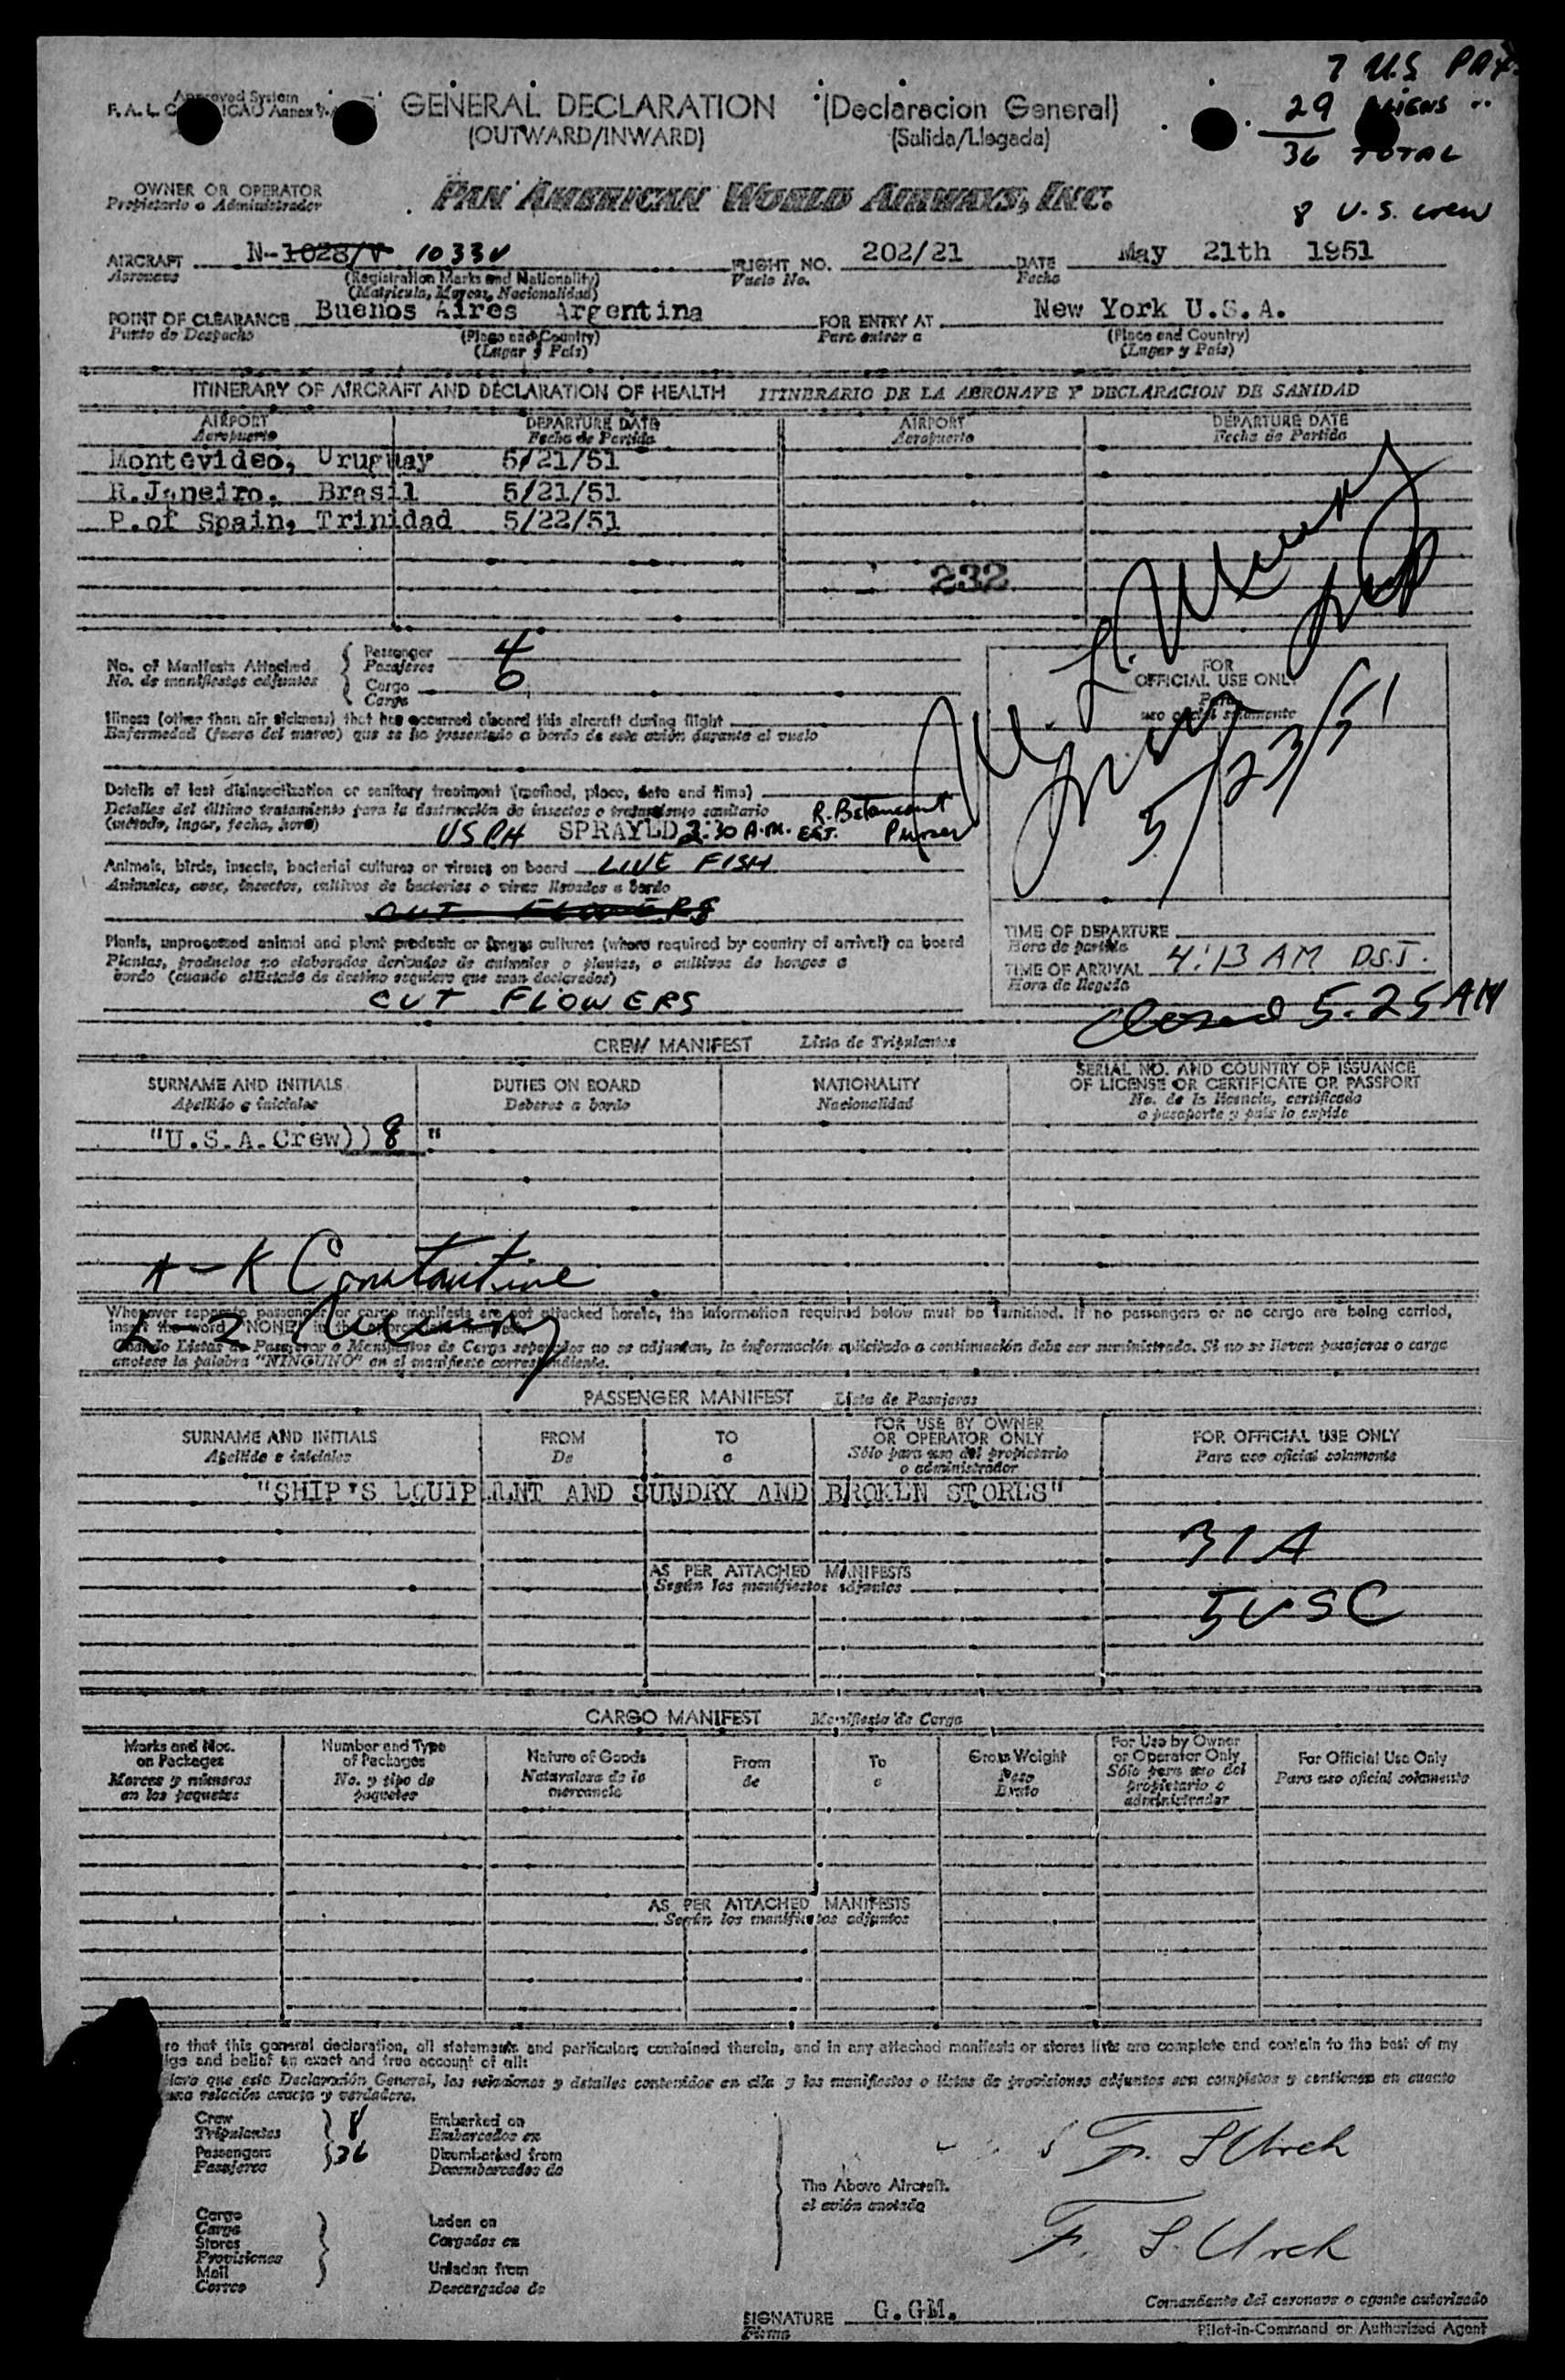 7 U.S PAX.
Approved System
F. A. L. C ICAO Annex 9.
GENERAL DECLARATION (Declaracion General)
29 ALIENS "
(OUTWARD/INWARD) (Salida/Llegada)
36 TOTAL
OWNER OR OPERATOR
Propietario o Administrador
PAN AMERICAN WORLD AIRWAYS, INC.
8 U.S. crew
AIRCRAFT N-1028/V 1033V FLIGHT NO. 202/21 DATE May 21th 1951
Aeronave (Registration Marks and Nationality) Vuelo No. Fecha
(Matricula, Marcas, Nacionalidad)
POINT OF CLEARANCE Buenos Aires Argentina FOR ENTRY AT New York U.S.A.
Punto de Despacho (Place and Country) Para entrar a (Place and Country)
(Lugar y Pais) (Lugar y Pais)
ITINERARY OF AIRCRAFT AND DECLARATION OF HEALTH ITINERARIO DE LA AERONAVE Y DECLARACION DE SANIDAD
AIRPORT DEPARTURE DATE AIRPORT DEPARTURE DATE
Aeropuerto Fecha de Partida Aeropuerto Fecha de Partida
Montevideo, Uruguay 5/21/51
R.Janeiro. Brasil 5/21/51
P.of Spain, Trinidad 5/22/51
232
No. of Manifests Attached
No. de manifiestos adjuntos
Passenger 4
Pasajeros
Cargo 0
Carga
FOR
OFFICIAL USE ONLY
Para
uso oficial solamente
5/23/51
Illness (other than air sickness) that has occurred aboard this aircraft during flight
Enfermedad (fuera del mareo) que se ha presentado a bordo de este avión durante el vuelo
Details of last disinsectization or sanitary treatment (method, place, date and time)
Detalles del último tratamiento para la destrucción de insectos o tratamiento sanitario
(método, lugar, fecha, hora)
USPH SPRAYED 2:30 A.M. EST. R. Betancourt Purser
Animals, birds, insects, bacterial cultures or viruses on board LIVE FISH
Animales, aves, insectos, cultivos de bacterias o virus llevados a bordo
CUT FLOWERS
Plants, unprocessed animal and plant products or fungus cultures (where required by country of arrival) on board
Plantas, productos no elaborados derivados de animales o plantas, o cultivos de hongos a
bordo (cuando elEstado de destino requiere que sean declarados)
CUT FLOWERS
TIME OF DEPARTURE
Hora de partida
TIME OF ARRIVAL 4:13 AM D.S.T.
Hora de llegada
Closed 5.25 AM
CREW MANIFEST Lista de Tripulantes
SURNAME AND INITIALS DUTIES ON BOARD NATIONALITY SERIAL NO. AND COUNTRY OF ISSUANCE
OF LICENSE OR CERTIFICATE OR PASSPORT
Apellido e iniciales Deberes a bordo Nacionalidad No. de la licencia, certificado
o pasaporte y pais lo expide
"U.S.A.Crew)) 8 "
A - K Constantine
L - Z
Whenever separate passenger or cargo manifests are not attached hereto, the information required below must be furnished. If no passengers or no cargo are being carried,
insert the word "NONE" in the
Cuando Listas de Pasajeros o Manifiestos de Carga separados no se adjunten, la información solicitada a continuación debe ser suministrada. Si no se llevan pasajeros o carga
anotese la palabra "NINGUNO" en el manifiesto correspondiente.
PASSENGER MANIFEST Lista de Pasajeros
SURNAME AND INITIALS FROM TO FOR USE BY OWNER
OR OPERATOR ONLY FOR OFFICIAL USE ONLY
Apellido e iniciales De a Sólo para uso del propietario
o administrador Para uso oficial solamente
"SHIP'S EQUIPMENT AND SUNDRY AND BROKEN STORES"
31A
AS PER ATTACHED MANIFESTS
Según los manifiestos adjuntos
5USC
CARGO MANIFEST Manifiesto de Carga
Marks and Nos.
on Packages
Marcas y números
en los paquetes
Number and Type
of Packages
No. y tipo de
paquetes
Nature of Goods
Naturaleza de la
mercancía
From
de
To
a
Gross Weight
Peso
Bruto
For Use by Owner
or Operator Only
Sólo para uso del
propietario o
administrador
For Official Use Only
Para uso oficial solamente
AS PER ATTACHED MANIFESTS
Según los manifiestos adjuntos
re that this general declaration, all statements and particulars contained therein, and in any attached manifests or stores lists are complete and contain to the best of my
ige and belief an exact and true account of all:
claro que esta Declaración General, las relaciones y detalles contenidos en ella y los manifiestos o listas de provisiones adjuntos son completos y contienen en cuanto
una relación exacta y verdadera.
Crew 8
Tripulantes
Passengers 36
Pasajeros
Embarked on
Embarcados en
Disembarked from
Desembarcados de
Cargo
Carga
Stores
Provisiones
Mail
Correo
Laden on
Cargados en
Unladen from
Descargados de
The Above Aircraft.
el avión anotado
F. S Urch
F. S. Urch
Comandante del aeronave o agente autorizado
SIGNATURE G.GM.
Firma
Pilot-in-Command or Authorized Agent